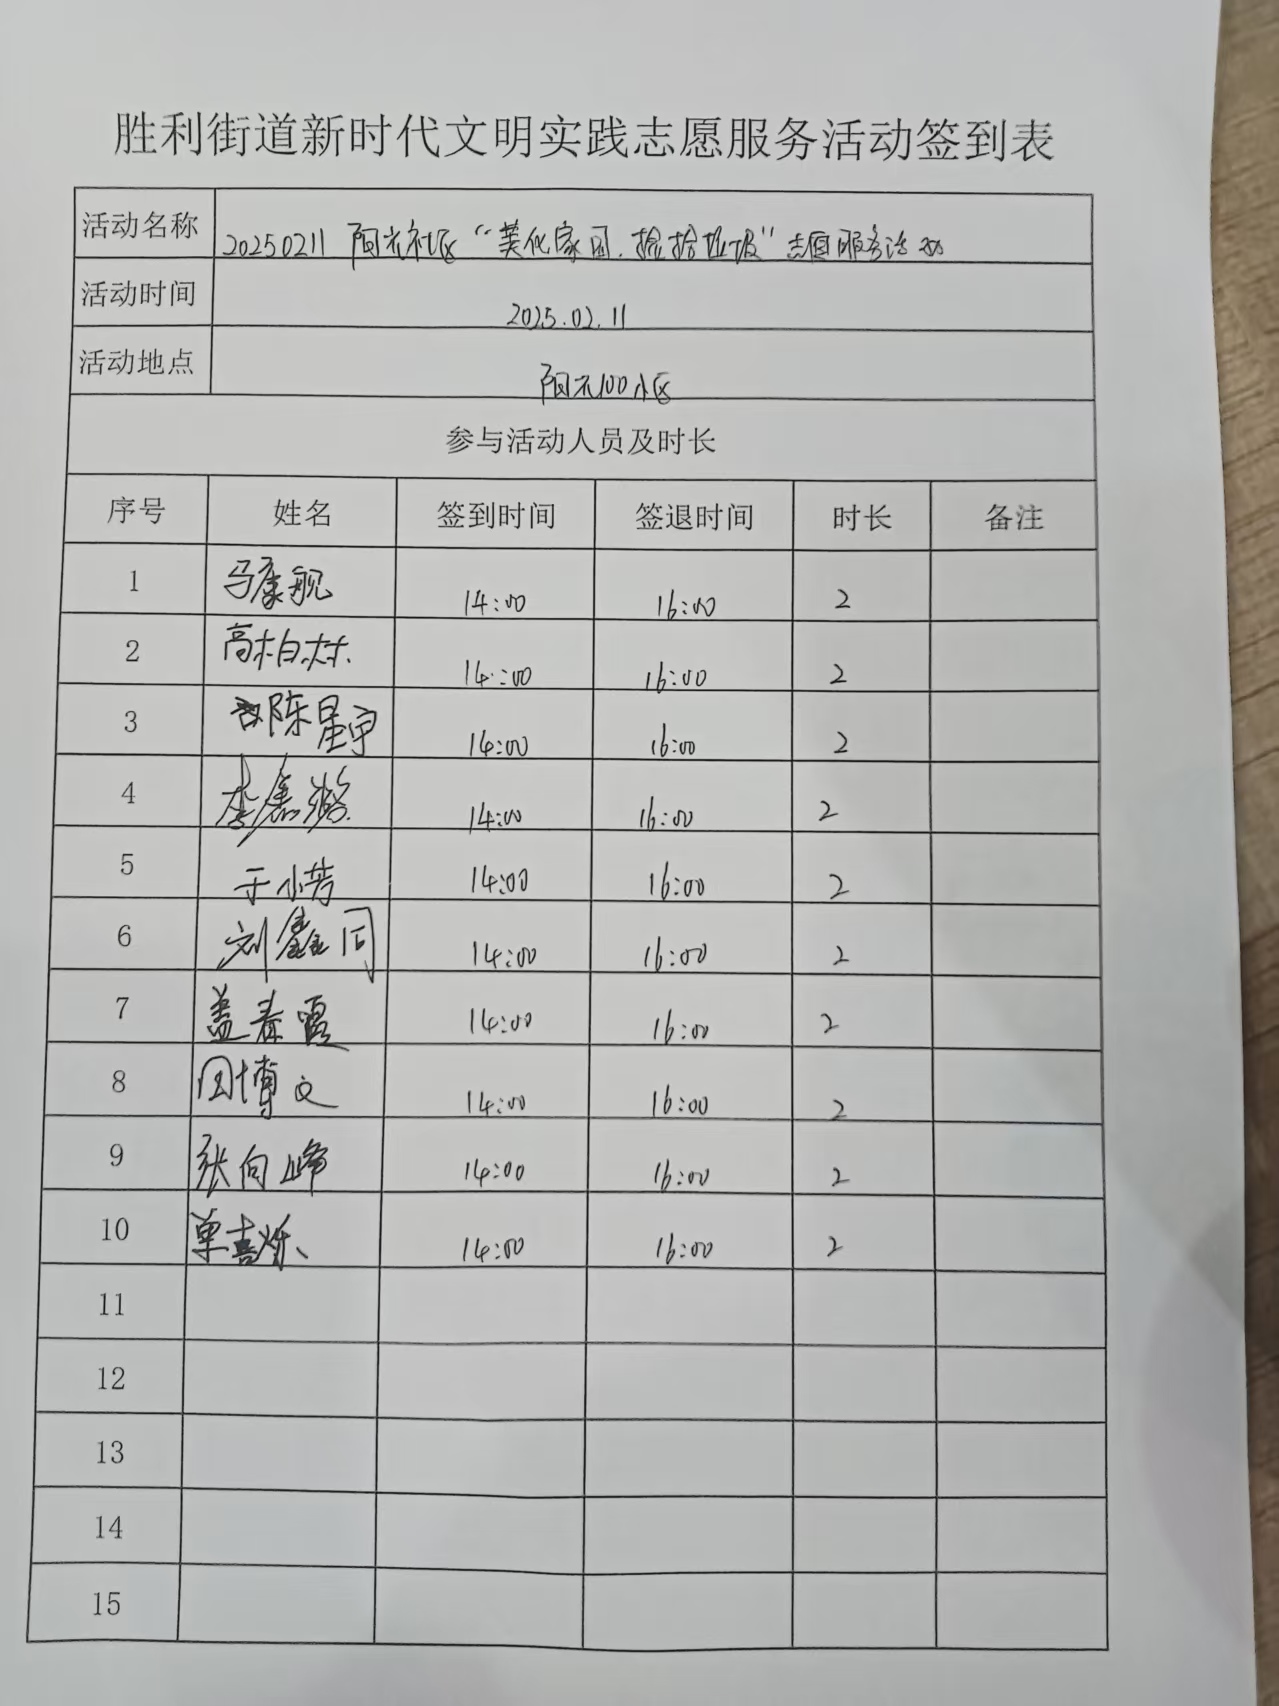 胜利街道新时代文明实践志愿服务活动签到表
活动名称 20250211 阳光社区“美化家园.捡拾垃圾”志愿服务活动
活动时间 2025.02.11
活动地点 阳光100小区
参与活动人员及时长
序号 姓名 签到时间 签退时间 时长 备注
1 马康舰 14:00 16:00 2
2 高柏林 14:00 16:00 2
3 陈星宇 14:00 16:00 2
4 李 14:00 16:00 2
5 于小芳 14:00 16:00 2
6 刘鑫同 14:00 16:00 2
7 盖春霞 14:00 16:00 2
8 田博文 14:00 16:00 2
9 张向峰 14:00 16:00 2
10 单喜烁 14:00 16:00 2
11
12
13
14
15